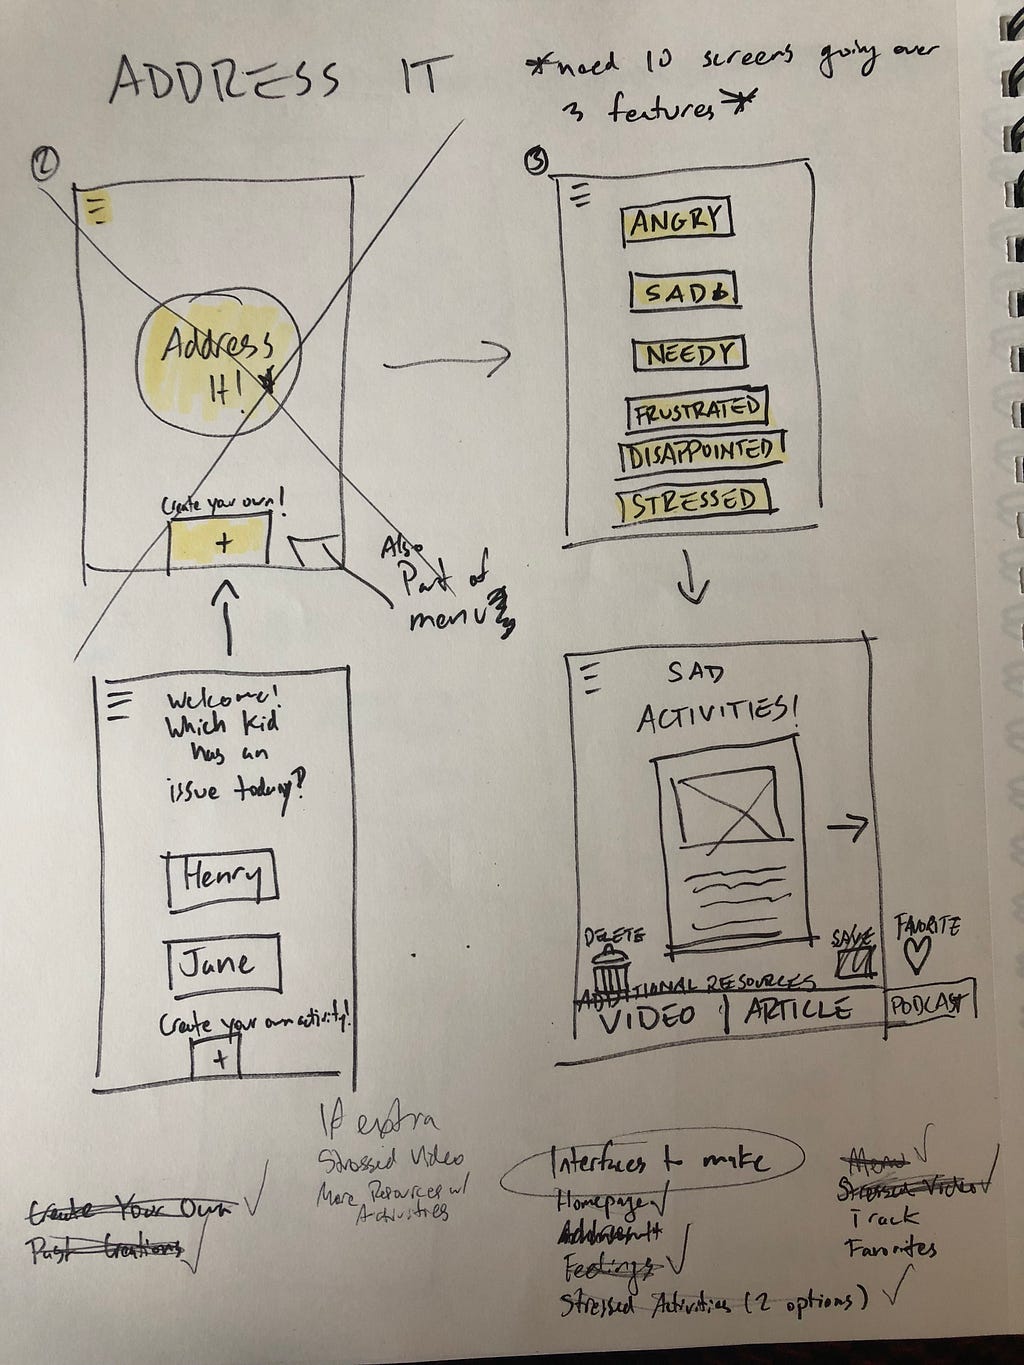 ADDRESS IT
*need 10 screens going over
3 features*
2
Address
It!
Create your own!
+
Also
Part of
menu
3
ANGRY
SAD
NEEDY
FRUSTRATED
DISAPPOINTED
STRESSED
Welcome!
Which kid
has an
issue today?
Henry
Jane
Create your own activity!
+
SAD
ACTIVITIES!
DELETE
SAVE
FAVORITE
ADDITIONAL RESOURCES
VIDEO | ARTICLE
PODCAST
If extra
Stressed Video
More Resources w/
Activities
Create Your Own
Past Creations
Interfaces to make
Homepage
Address It
Feelings
Stressed Activities (2 options)
Menu
Stressed Video
Track
Favorites